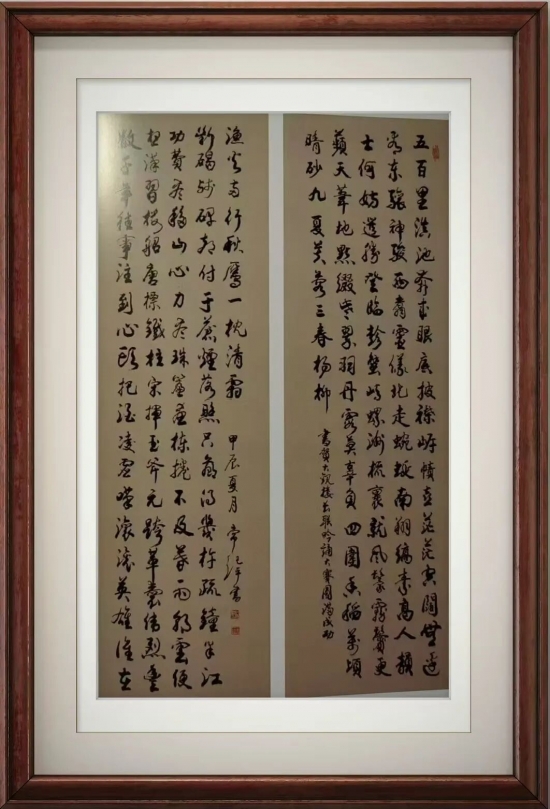 五百里滇池奔來眼底披襟岸幘喜茫茫空闊無邊
看東驤神駿西翥靈儀北走蜿蜒南翔縞素高人韻
士何妨選勝登臨趁蟹嶼螺洲梳裹就風鬟霧鬢更
蘋天葦地點綴些翠羽丹霞莫辜負四圍香稻萬頃
晴砂九夏芙蓉三春楊柳
書賀大觀樓長聯吟誦大賽圓滿成功
數千年往事注到心頭把酒凌虛嘆滾滾英雄誰在
想漢習樓船唐標鐵柱宋揮玉斧元跨革囊偉烈豐
功費盡移山心力盡珠簾畫棟捲不及暮雨朝雲便
斷碣殘碑都付于蒼煙落照只贏得幾杵疏鐘半江
漁火兩行秋雁一枕清霜
甲辰夏月 常 書